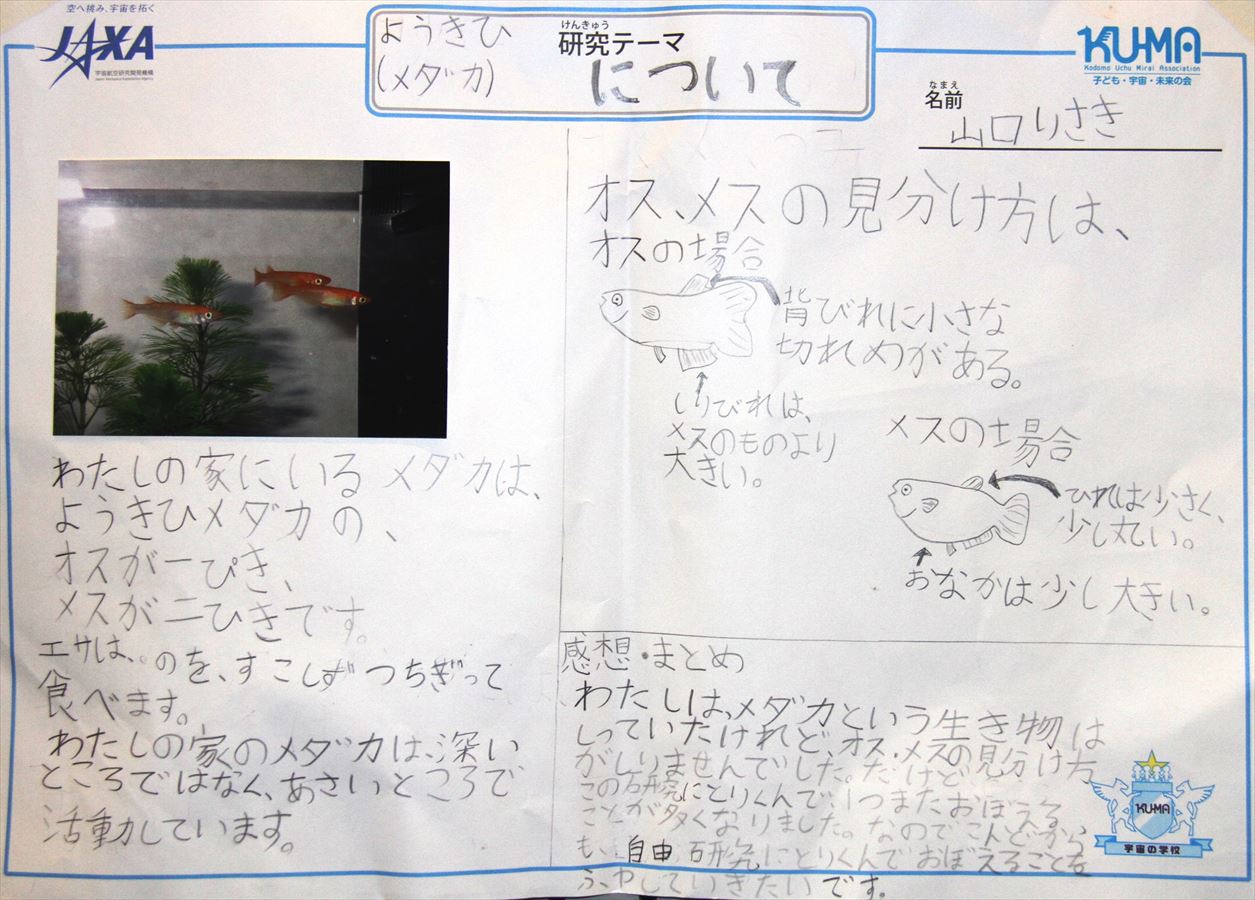 空へ挑み、宇宙を拓く
JAXA
宇宙航空研究開発機構
Japan Aerospace Exploration Agency
ようきひ
(メダカ)
けんきゅう
研究テーマ
について
KU-MA
Kodomo Uchu Mirai Association
子ども・宇宙・未来の会
なまえ
名前
山口りさき
わたしの家にいるメダカは、
ようきひメダカの、
オスが一ぴき、
メスが二ひきです。
エサは、のを、すこしずつちぎって
食べます。
わたしの家のメダカは、深い
ところではなく、あさいところで
活動しています。
オス、メスの見分け方は、
オスの場合
背びれに小さな
切れめがある。
しりびれは、
メスのものより
大きい。
メスの場合
ひれは少さく、
少し丸い。
おなかは少し大きい。
感想・まとめ
わたしは、メダカという生き物は
しっていたけれど、オス、メスの見分け方
がしりませんでした。だけど
この研究にとりくんで、1つまたおぼえる
ことが多くなりました。なのでこんどから
も、自由研究にとりくんでおぼえることを
ふやしていきたいです。
KU-MA
宇宙の学校